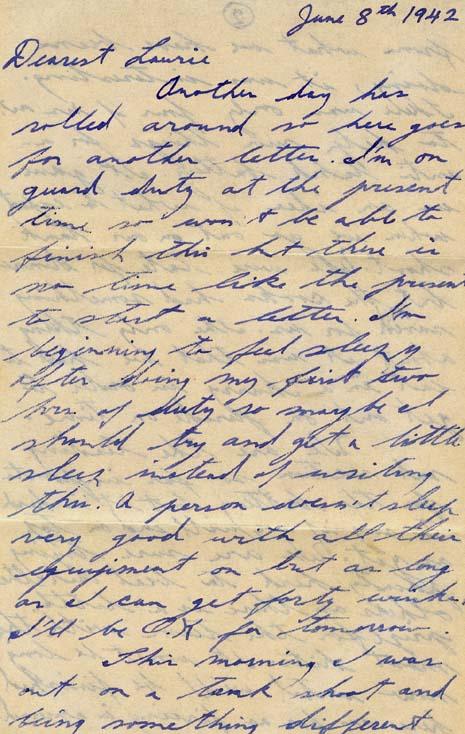 June 8th 1942
Dearest Laurie
Another day has
rolled around so here goes
for another letter. I'm on
guard duty at the present
time so won't be able to
finish this but there is
no time like the present
to start a letter. I'm
beginning to feel sleepy
after doing my first two
hrs of duty so maybe I
should try and get a little
sleep instead of writing
this. A person doesn't sleep
very good with all their
equipment on but as long
as I can get forty winks
I'll be O.K for tomorrow.
This morning I was
out on a tank shoot and
being something different